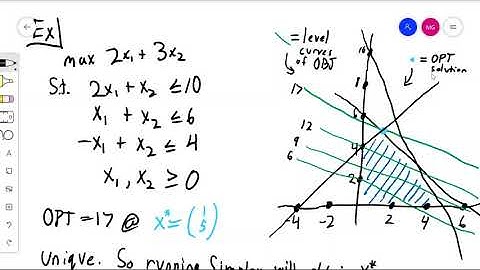 Ex]
max 2x₁ + 3x₂
s.t. 2x₁ + x₂ ≤ 10
x₁ + x₂ ≤ 6
-x₁ + x₂ ≤ 4
x₁, x₂ ≥ 0
OPT = 17 @ x* = (1 5)
Unique. So running simplex will obtain x*
MG
= level
curves
of OBJ
* = OPT
solution
17
12
9
6
10
8
6
4
2
-4 -2 2 4 6